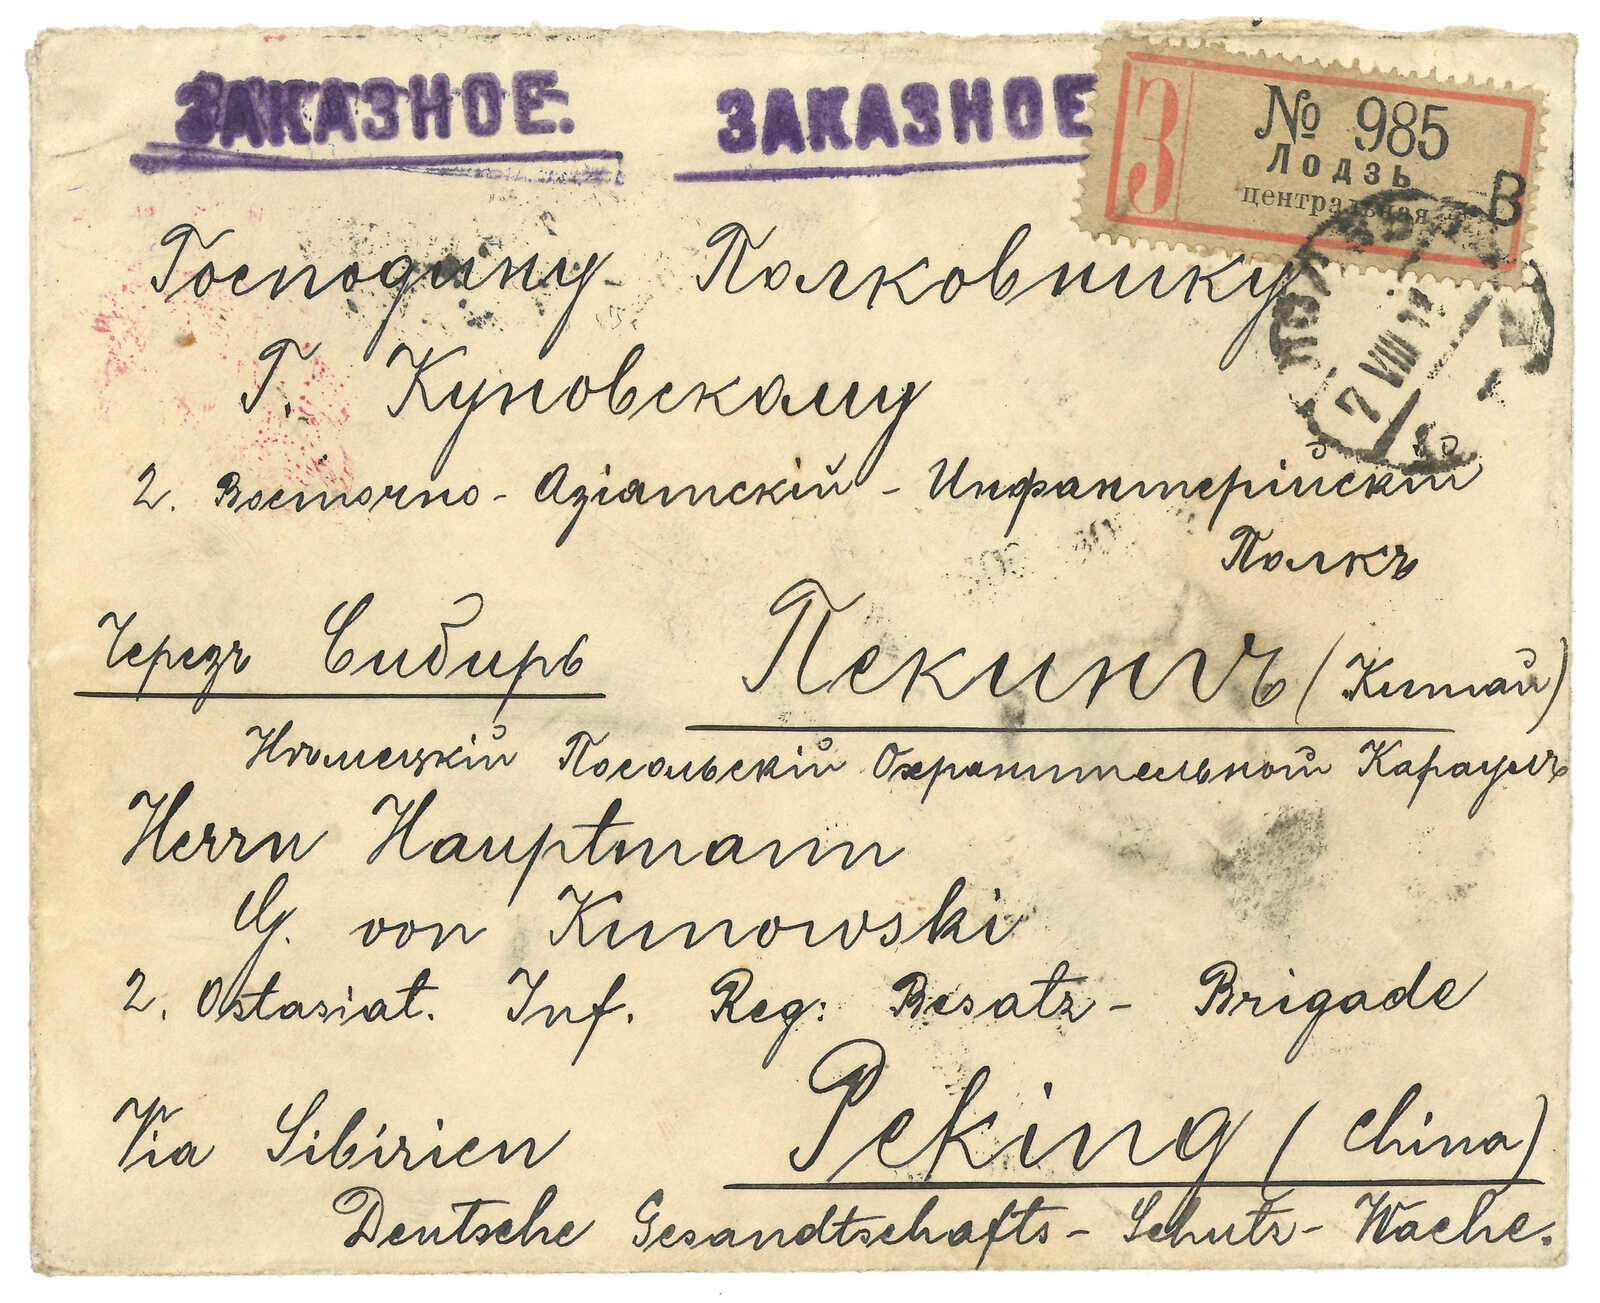 ЗАКАЗНОЕ. ЗАКАЗНОЕ
З № 985
Лодзь
центральная
В
7 VIII 11
Господину Полковнику
Г. Куновскому
2. Восточно-Азіатскій-Инфантерійскій
Полкъ
Черезъ Сибирь Пекингъ (Китай)
Нѣмецкій Посольскій Охранительной Караулъ
Herrn Hauptmann
G. von Kunowski
2. Ostasiat. Inf. Reg: Besatz-Brigade
Via Sibirien Peking (China)
Deutsche Gesandtschafts-Schutz-Wache.